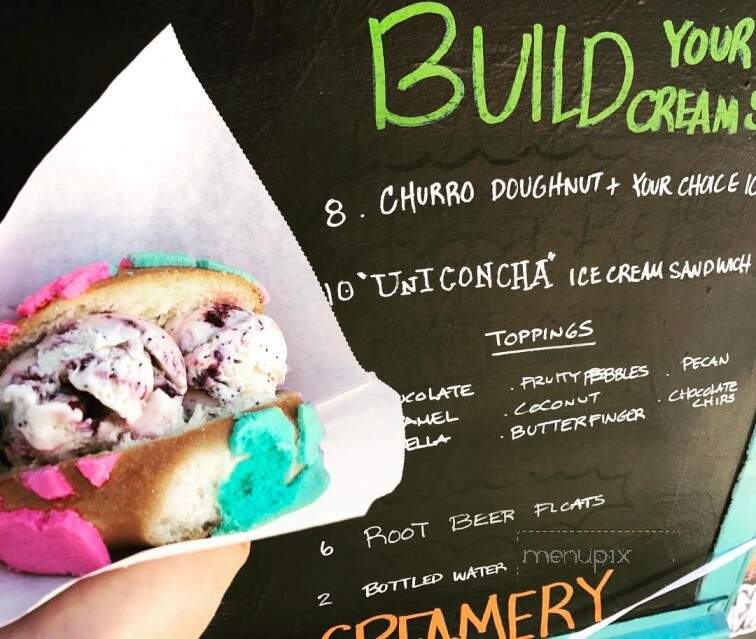 BUILD YOUR
CREAM S
8 . CHURRO DOUGHNUT + YOUR CHOICE IC
10 "UNICONCHA" ICE CREAM SANDWICH
TOPPINGS
COLATE . FRUITY PEBBLES . PECAN
AMEL . COCONUT . CHOCOLATE CHIPS
ELLA . BUTTERFINGER
6 ROOT BEER FLOATS
menupix
2 BOTTLED WATER
CREAMERY